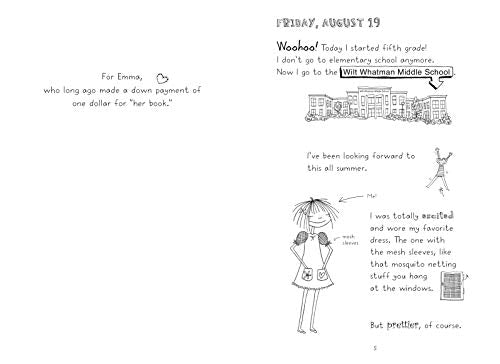 For Emma,
who long ago made a down payment of
one dollar for "her book."
FRIDAY, AUGUST 19
Woohoo! Today I started fifth grade!
I don't go to elementary school anymore.
Now I go to the Wilt Whatman Middle School.
I've been looking forward to
this all summer.
Me!
mesh
sleeves
I was totally excited
and wore my favorite
dress. The one with
the mesh sleeves, like
that mosquito netting
stuff you hang
at the windows.
But prettier, of course.
5